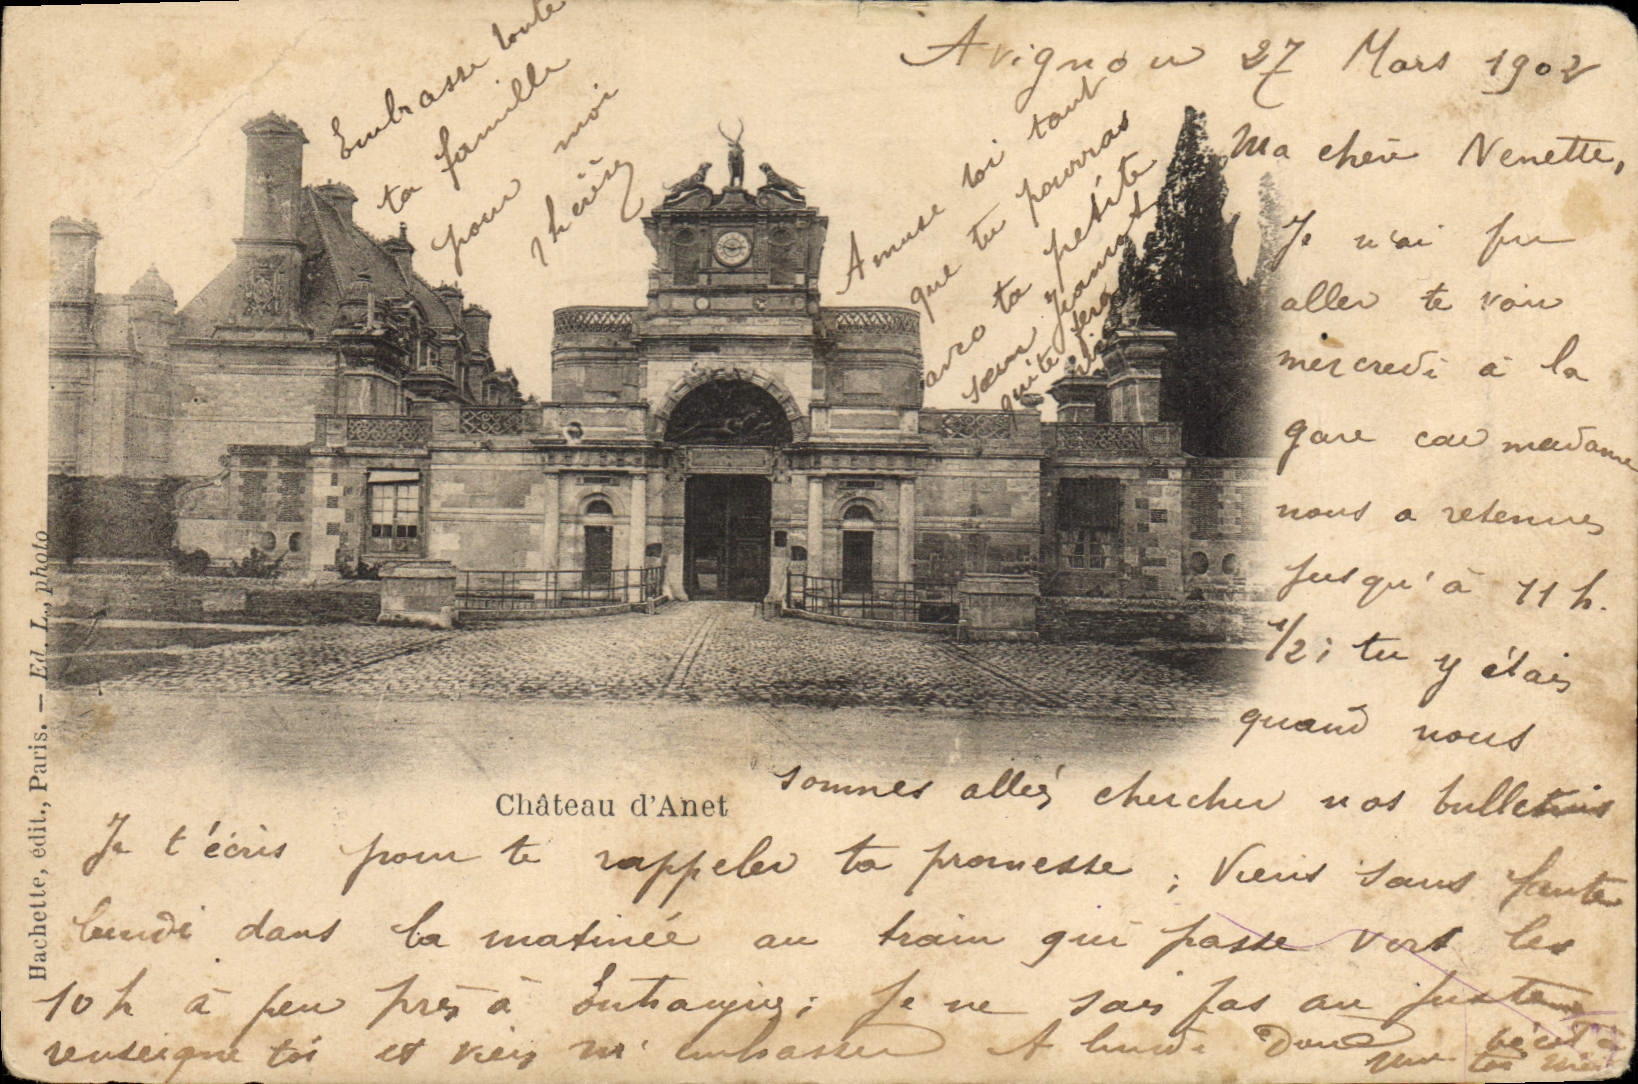 Avignon 27 Mars 1902
Ma chère Nenette,
Je n'ai pu
aller te voir
mercredi à la
gare car madame
nous a retenues
jusqu'à 11 h.
1/2 ; tu y étais
quand nous
sommes allées chercher nos bulletins
Je t'écris pour te rappeler ta promesse ; Viens sans faute
lundi dans la matinée au train qui passe vers les
10 h à peu près à ; Je ne sais pas au juste
renseigne toi et viens m'embrasser A lundi Donc
Amuse toi tant
que tu pourras
avec ta petite
sœur
qu'te
Embrasse toute
ta famille
pour moi
Château d'Anet
Hachette, édit., Paris. — Ed. L., photo